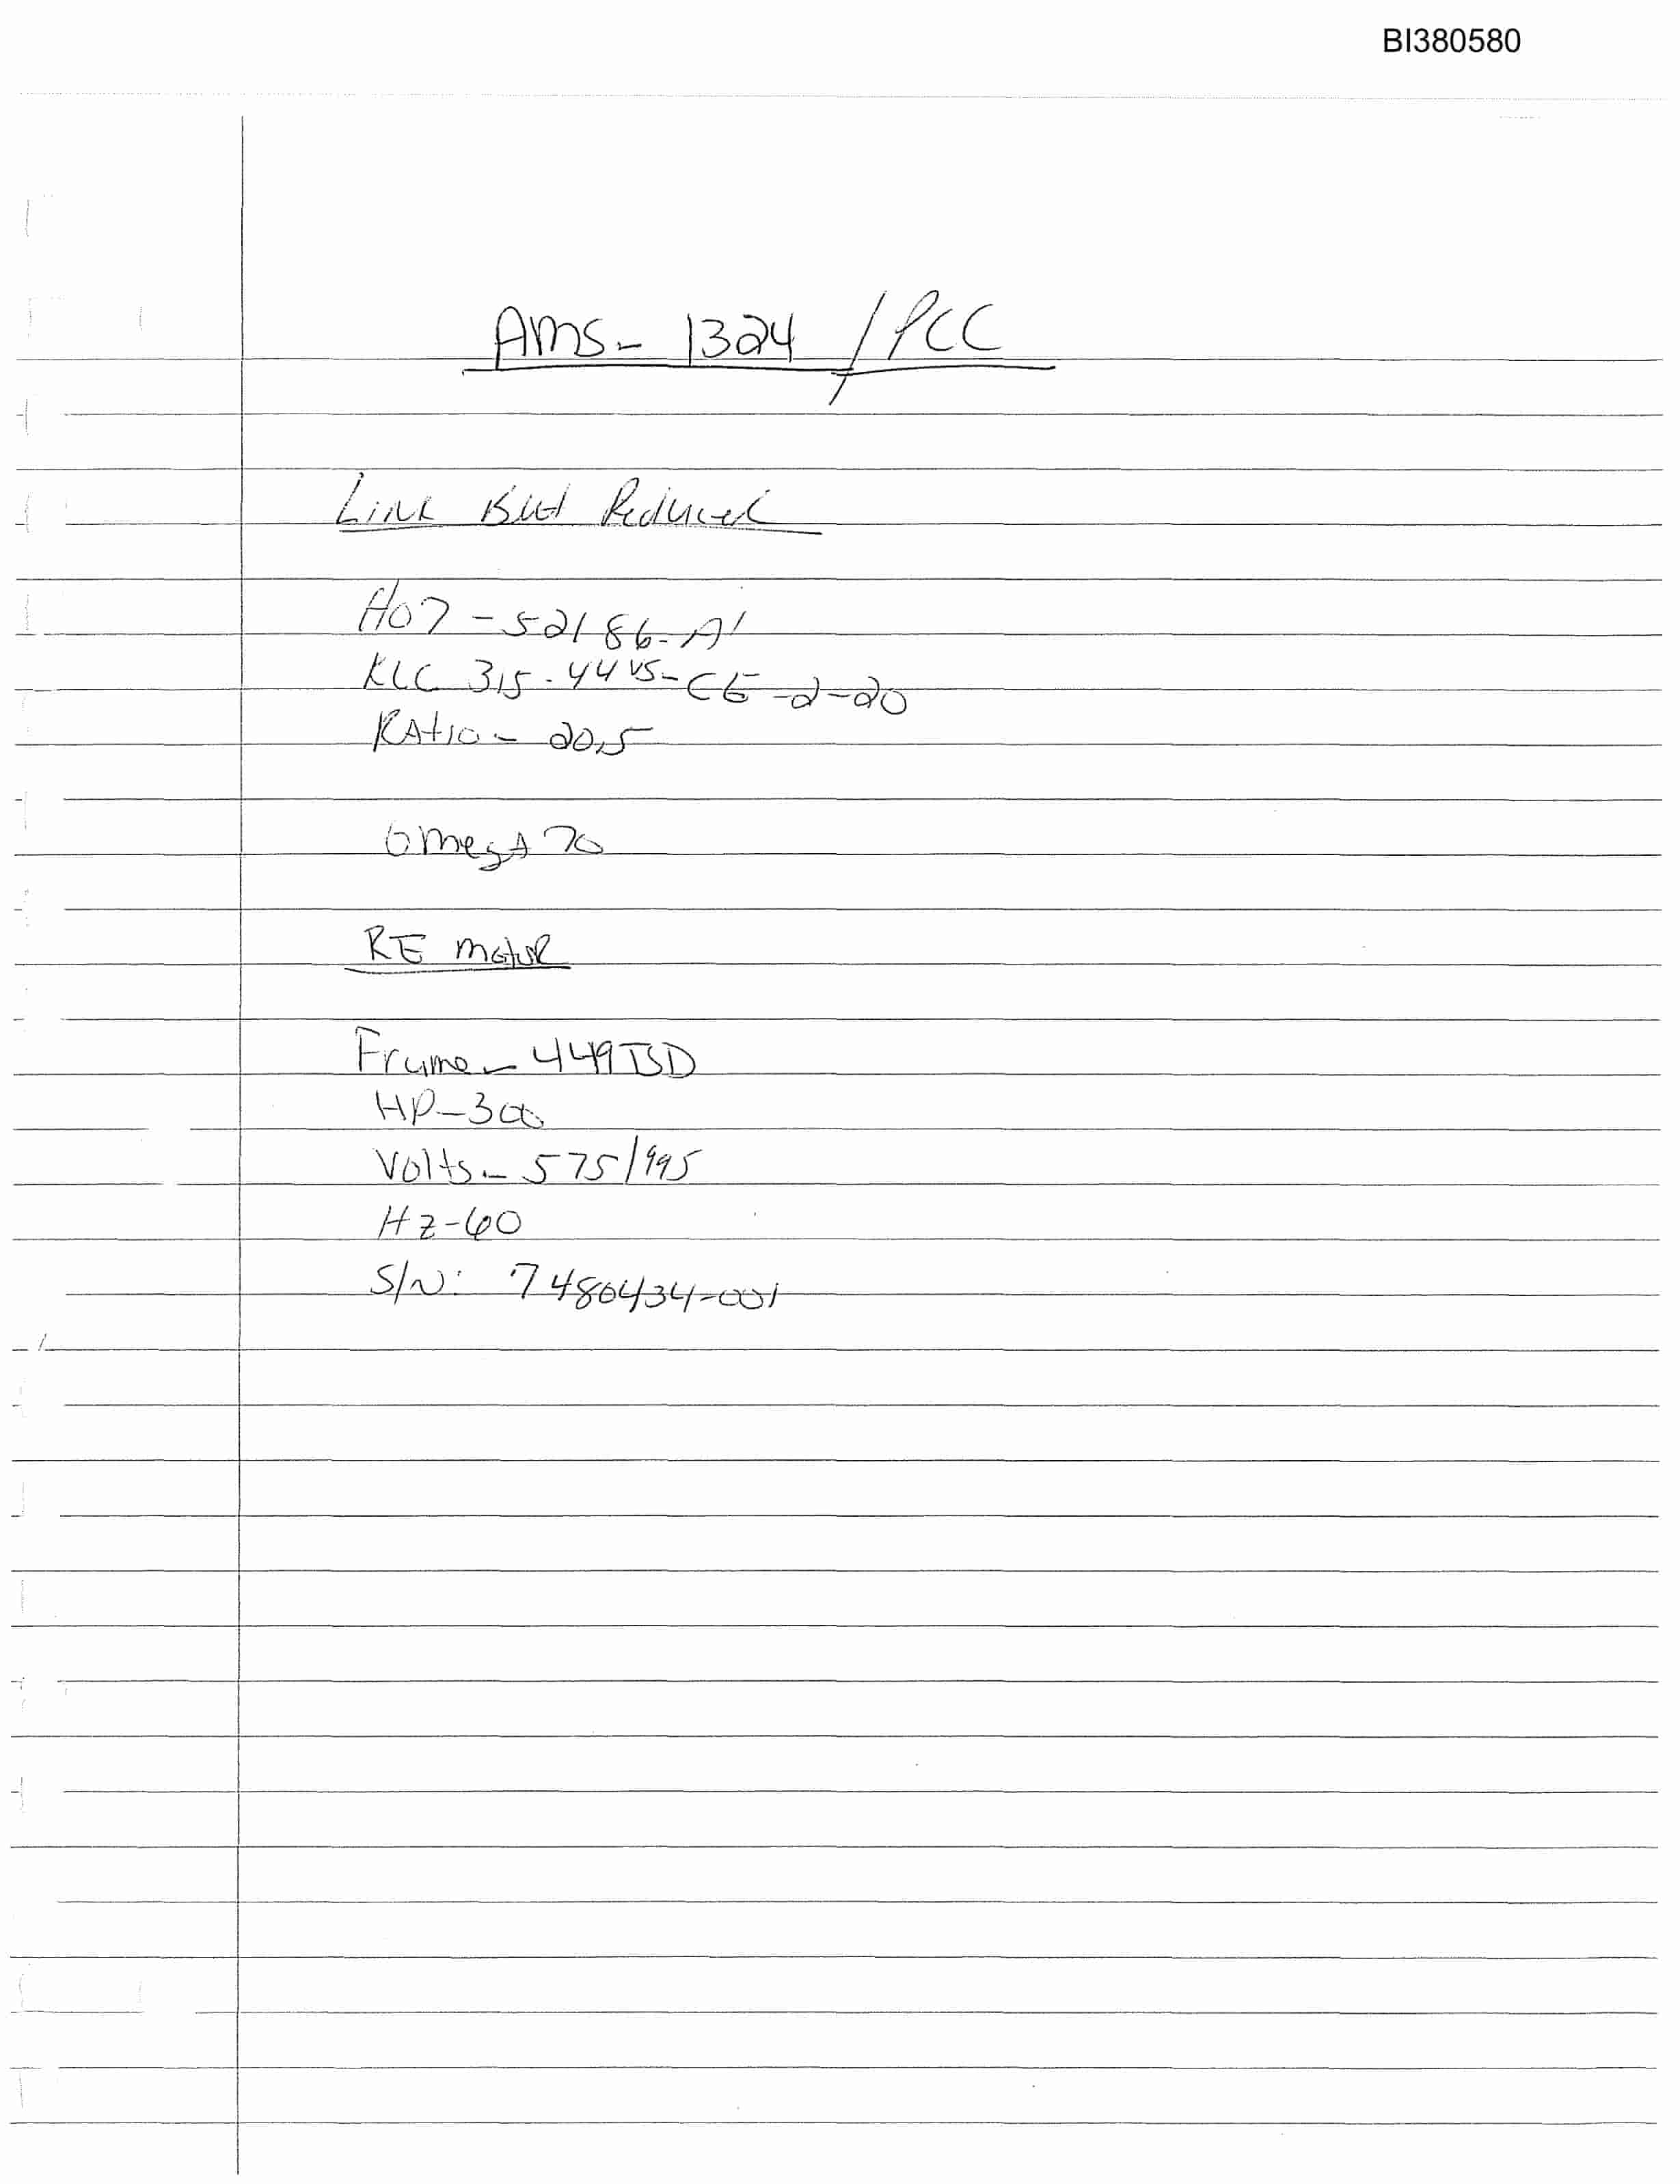 BI380580
AMS- 1324 /PCC
Link Belt Reducer
H07-52186-A1
KLC 315.44VS-CE-2-20
RAtio- 20.5
OmegA 70
RE motoR
Frame- 449TSD
HP-300
Volts- 575/995
HZ-60
S/N: 7480434-001